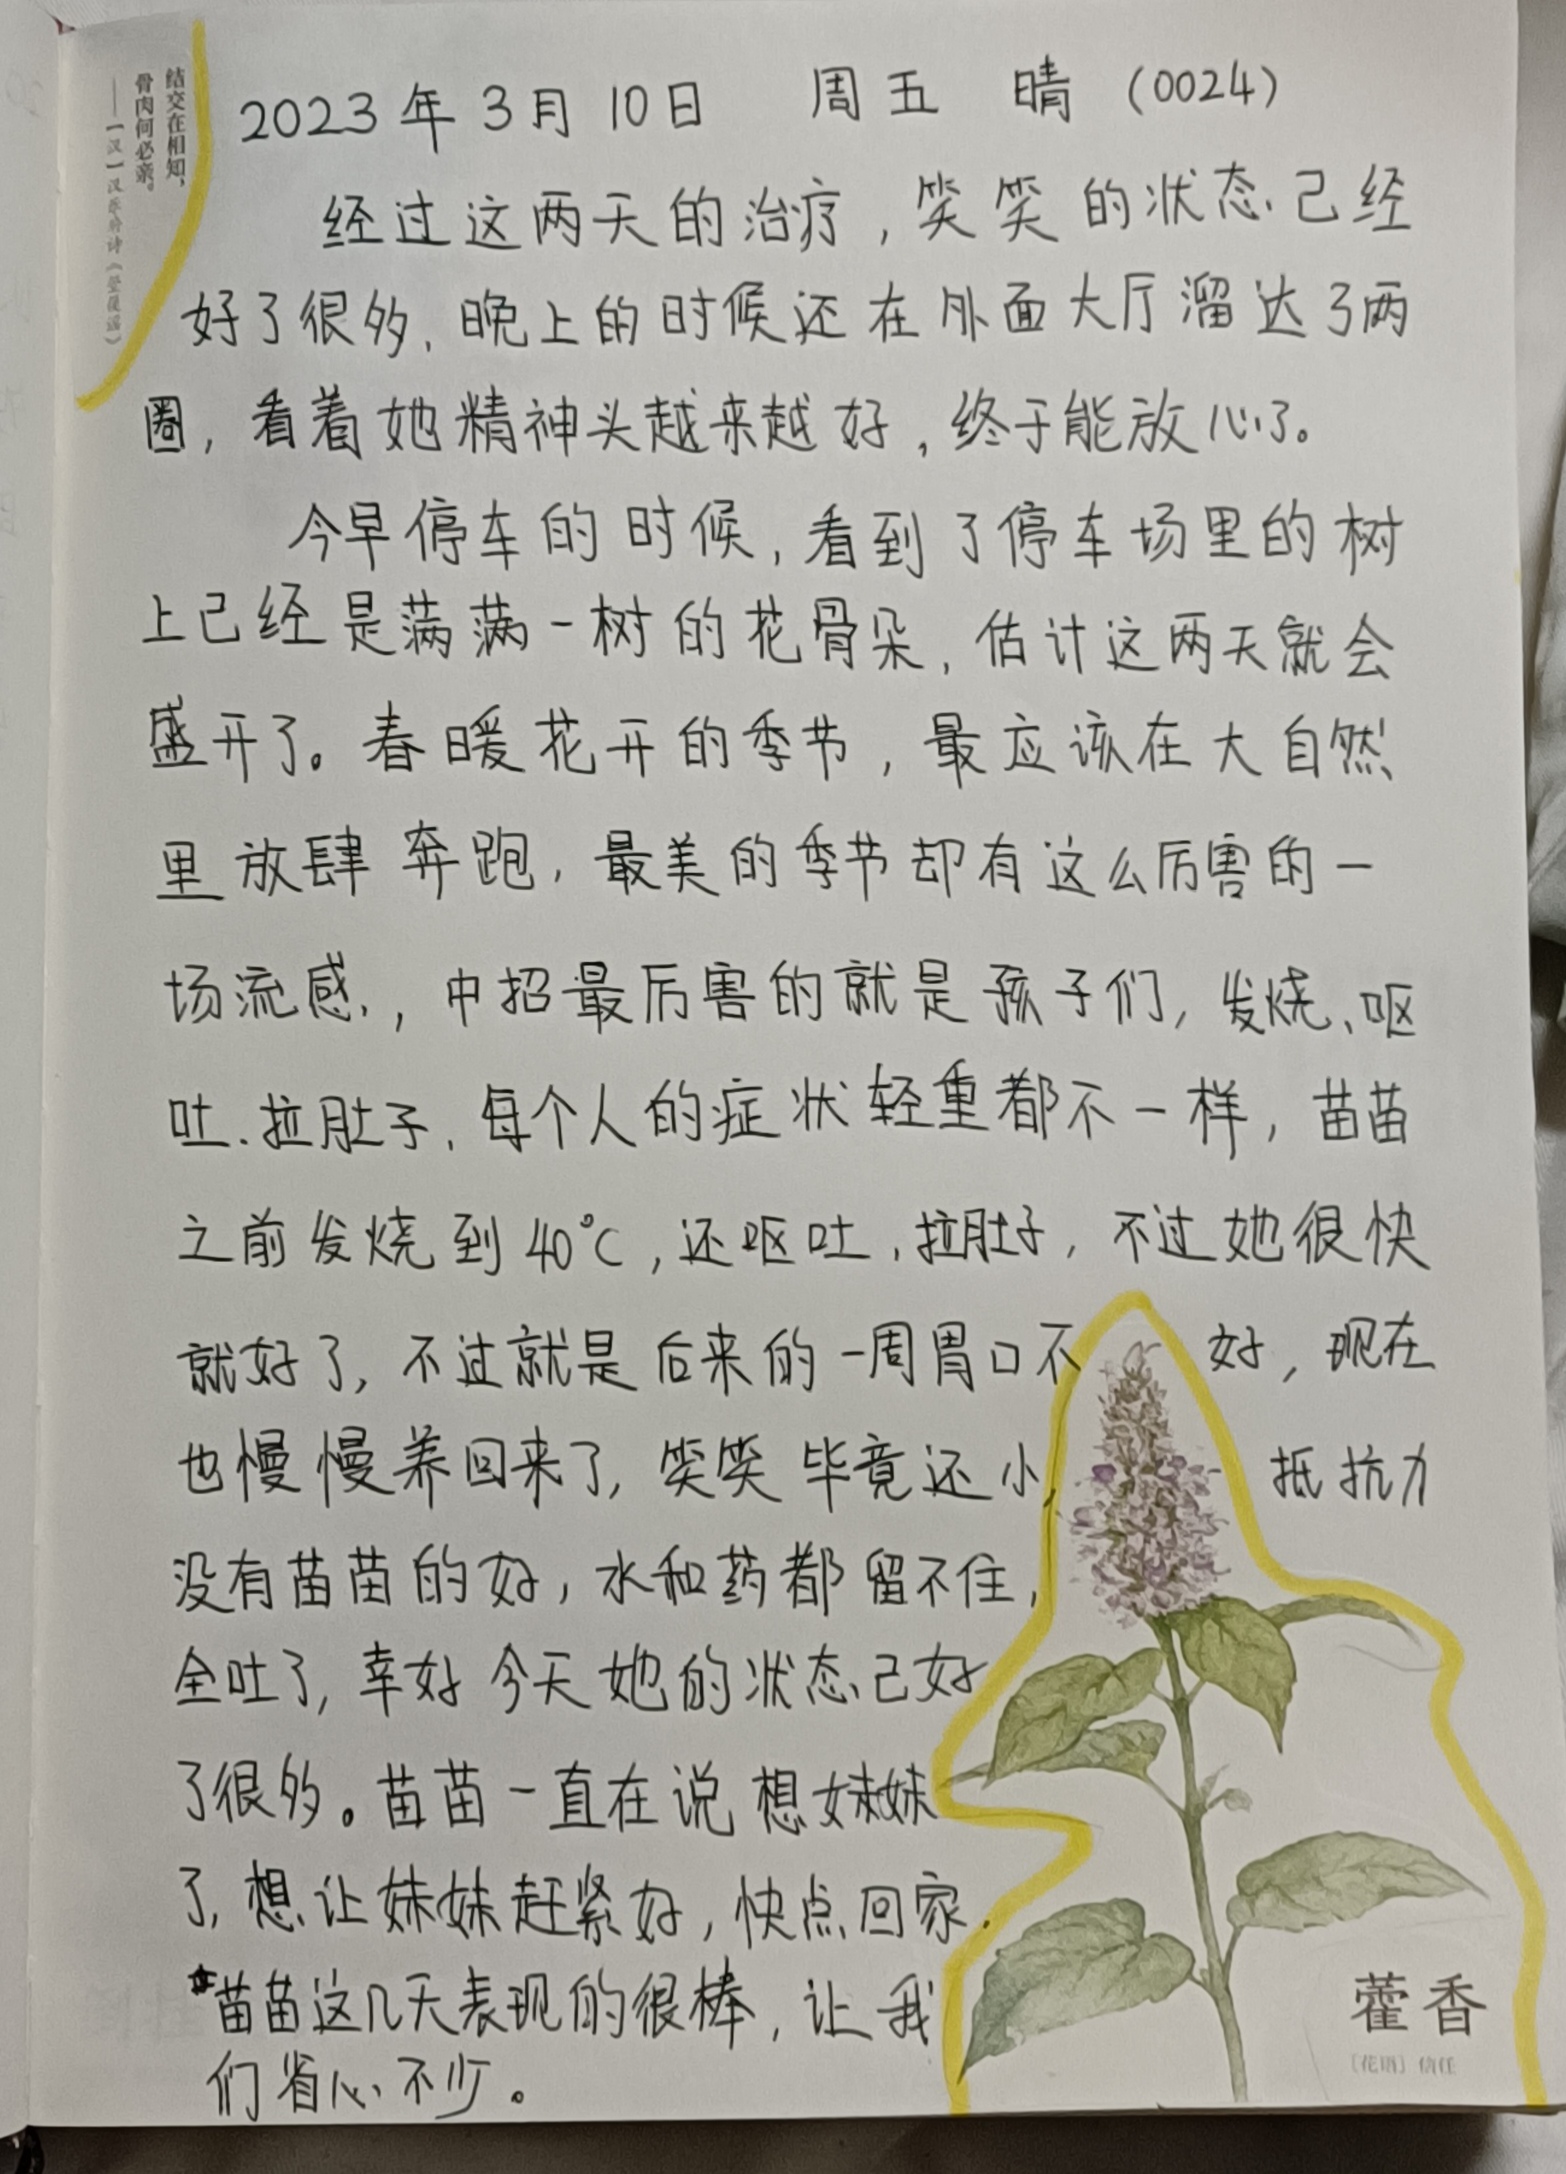 结交在相知，
骨肉何必亲。
——【汉】汉乐府诗《箜篌谣》
2023年3月10日 周五 晴（0024）
经过这两天的治疗，笑笑的状态已经
好了很多，晚上的时候还在外面大厅溜达了两
圈，看着她精神头越来越好，终于能放心了。
今早停车的时候，看到了停车场里的树
上已经是满满一树的花骨朵，估计这两天就会
盛开了。春暖花开的季节，最应该在大自然
里放肆奔跑，最美的季节却有这么厉害的一
场流感，，中招最厉害的就是孩子们，发烧、呕
吐、拉肚子，每个人的症状轻重都不一样，苗苗
之前发烧到40℃，还呕吐、拉肚子，不过她很快
就好了，不过就是后来的一周胃口不好，现在
也慢慢养回来了，笑笑毕竟还小，抵抗力
没有苗苗的好，水和药都留不住，
全吐了，幸好今天她的状态已好
了很多。苗苗一直在说想妹妹
了，想让妹妹赶紧好，快点回家.
*苗苗这几天表现的很棒，让我
们省心不少。
藿香
〔花语〕信任